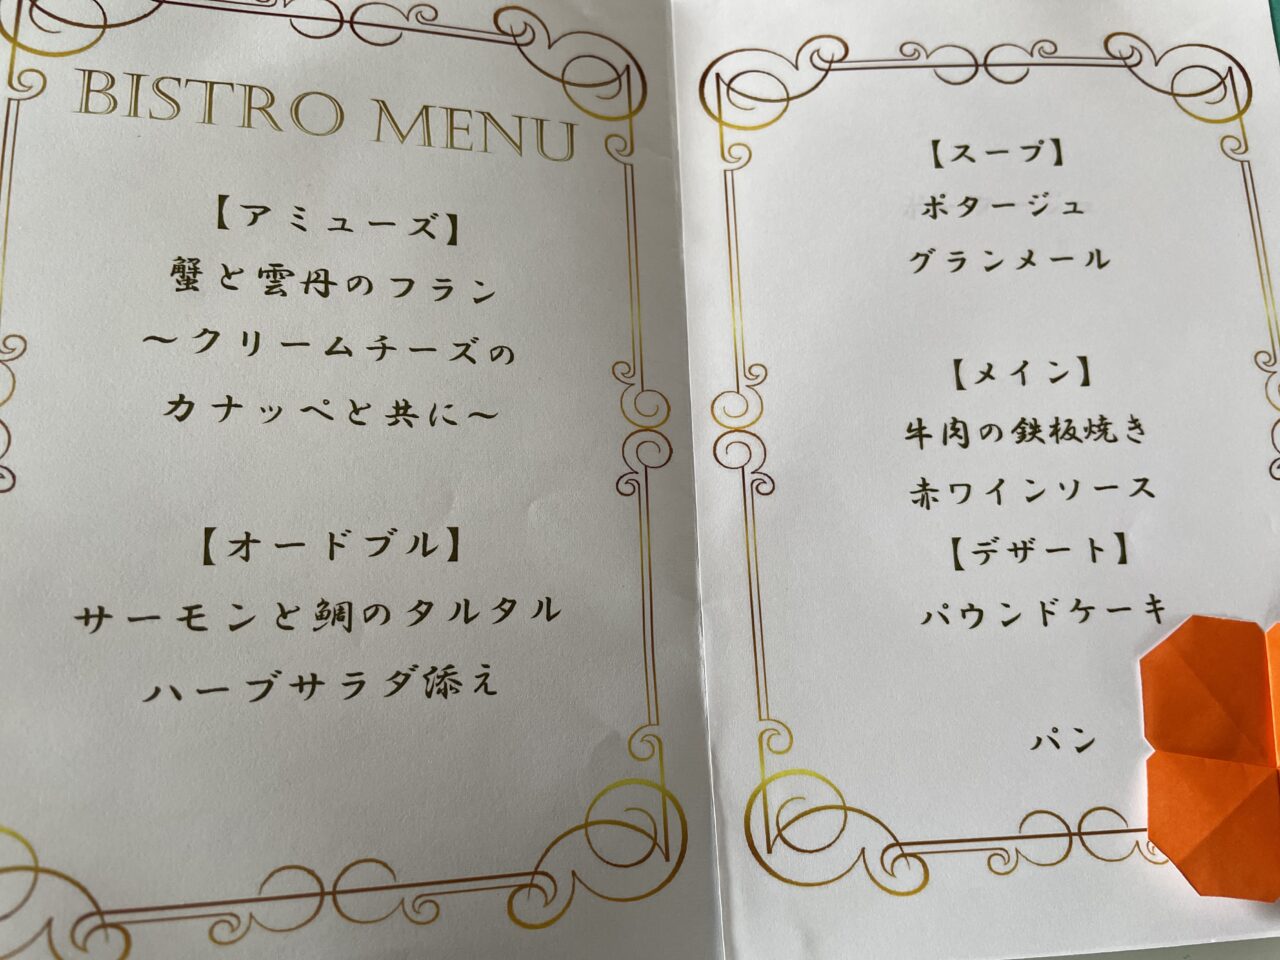 BISTRO MENU
【アミューズ】
蟹と雲丹のフラン
～クリームチーズの
カナッペと共に～
【オードブル】
サーモンと鯛のタルタル
ハーブサラダ添え
【スープ】
ポタージュ
グランメール
【メイン】
牛肉の鉄板焼き
赤ワインソース
【デザート】
パウンドケーキ
パン